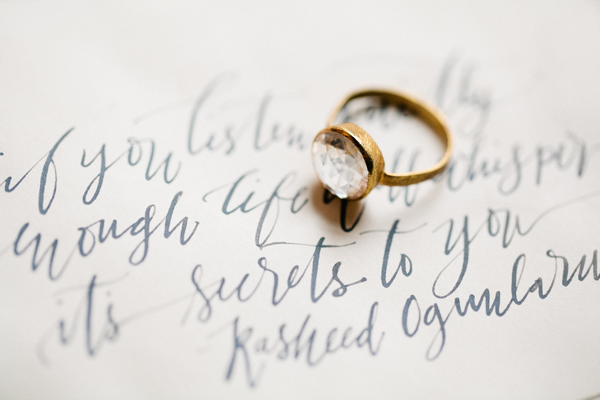 if you listen
enough life whisper
it's secrets to you
Rasheed Ogunlaru